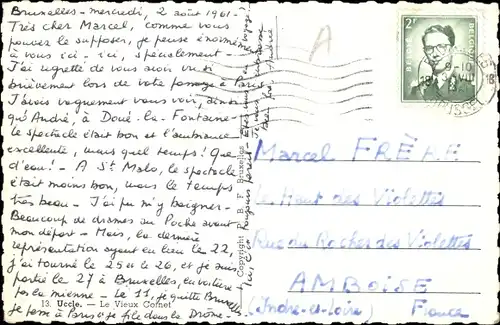 Bruxelles - mercredi, 2 août 1961 -
Très cher Marcel, comme vous
pouvez le supposer, je pense énormément
à vous ici - ici, spécialement -
J'ai regretté de vous avoir vu si
brièvement lors de votre passage à Paris
J'avais vaguement vous voir, ainsi
qu'André, à Doué-la-Fontaine -
le spectacle était bon et l'ambiance
excellente, mais quel temps ! Que
d'eau ! - A St Malo, le spectacle
était moins bon, mais le temps
très beau - J'ai pu m'y baigner -
Beaucoup de drames au Poche avant
mon départ - Mais, la dernière
représentation ayant eu lieu le 22,
j'ai tourné le 25 et le 26, et je suis
partie le 27 à Bruxelles, en voiture
par la mienne - Le 11, je quitte Bruxelles
je passe à Paris et je file dans le Drôme -
13. Uccle. — Le Vieux Cornet
Copyright
Bruxelles
A
2F
BELGIQUE
Marcel FRÈRE
Le Haut des Violettes
Rue du Rocher des Violettes
AMBOISE
(Indre-et-Loire) France